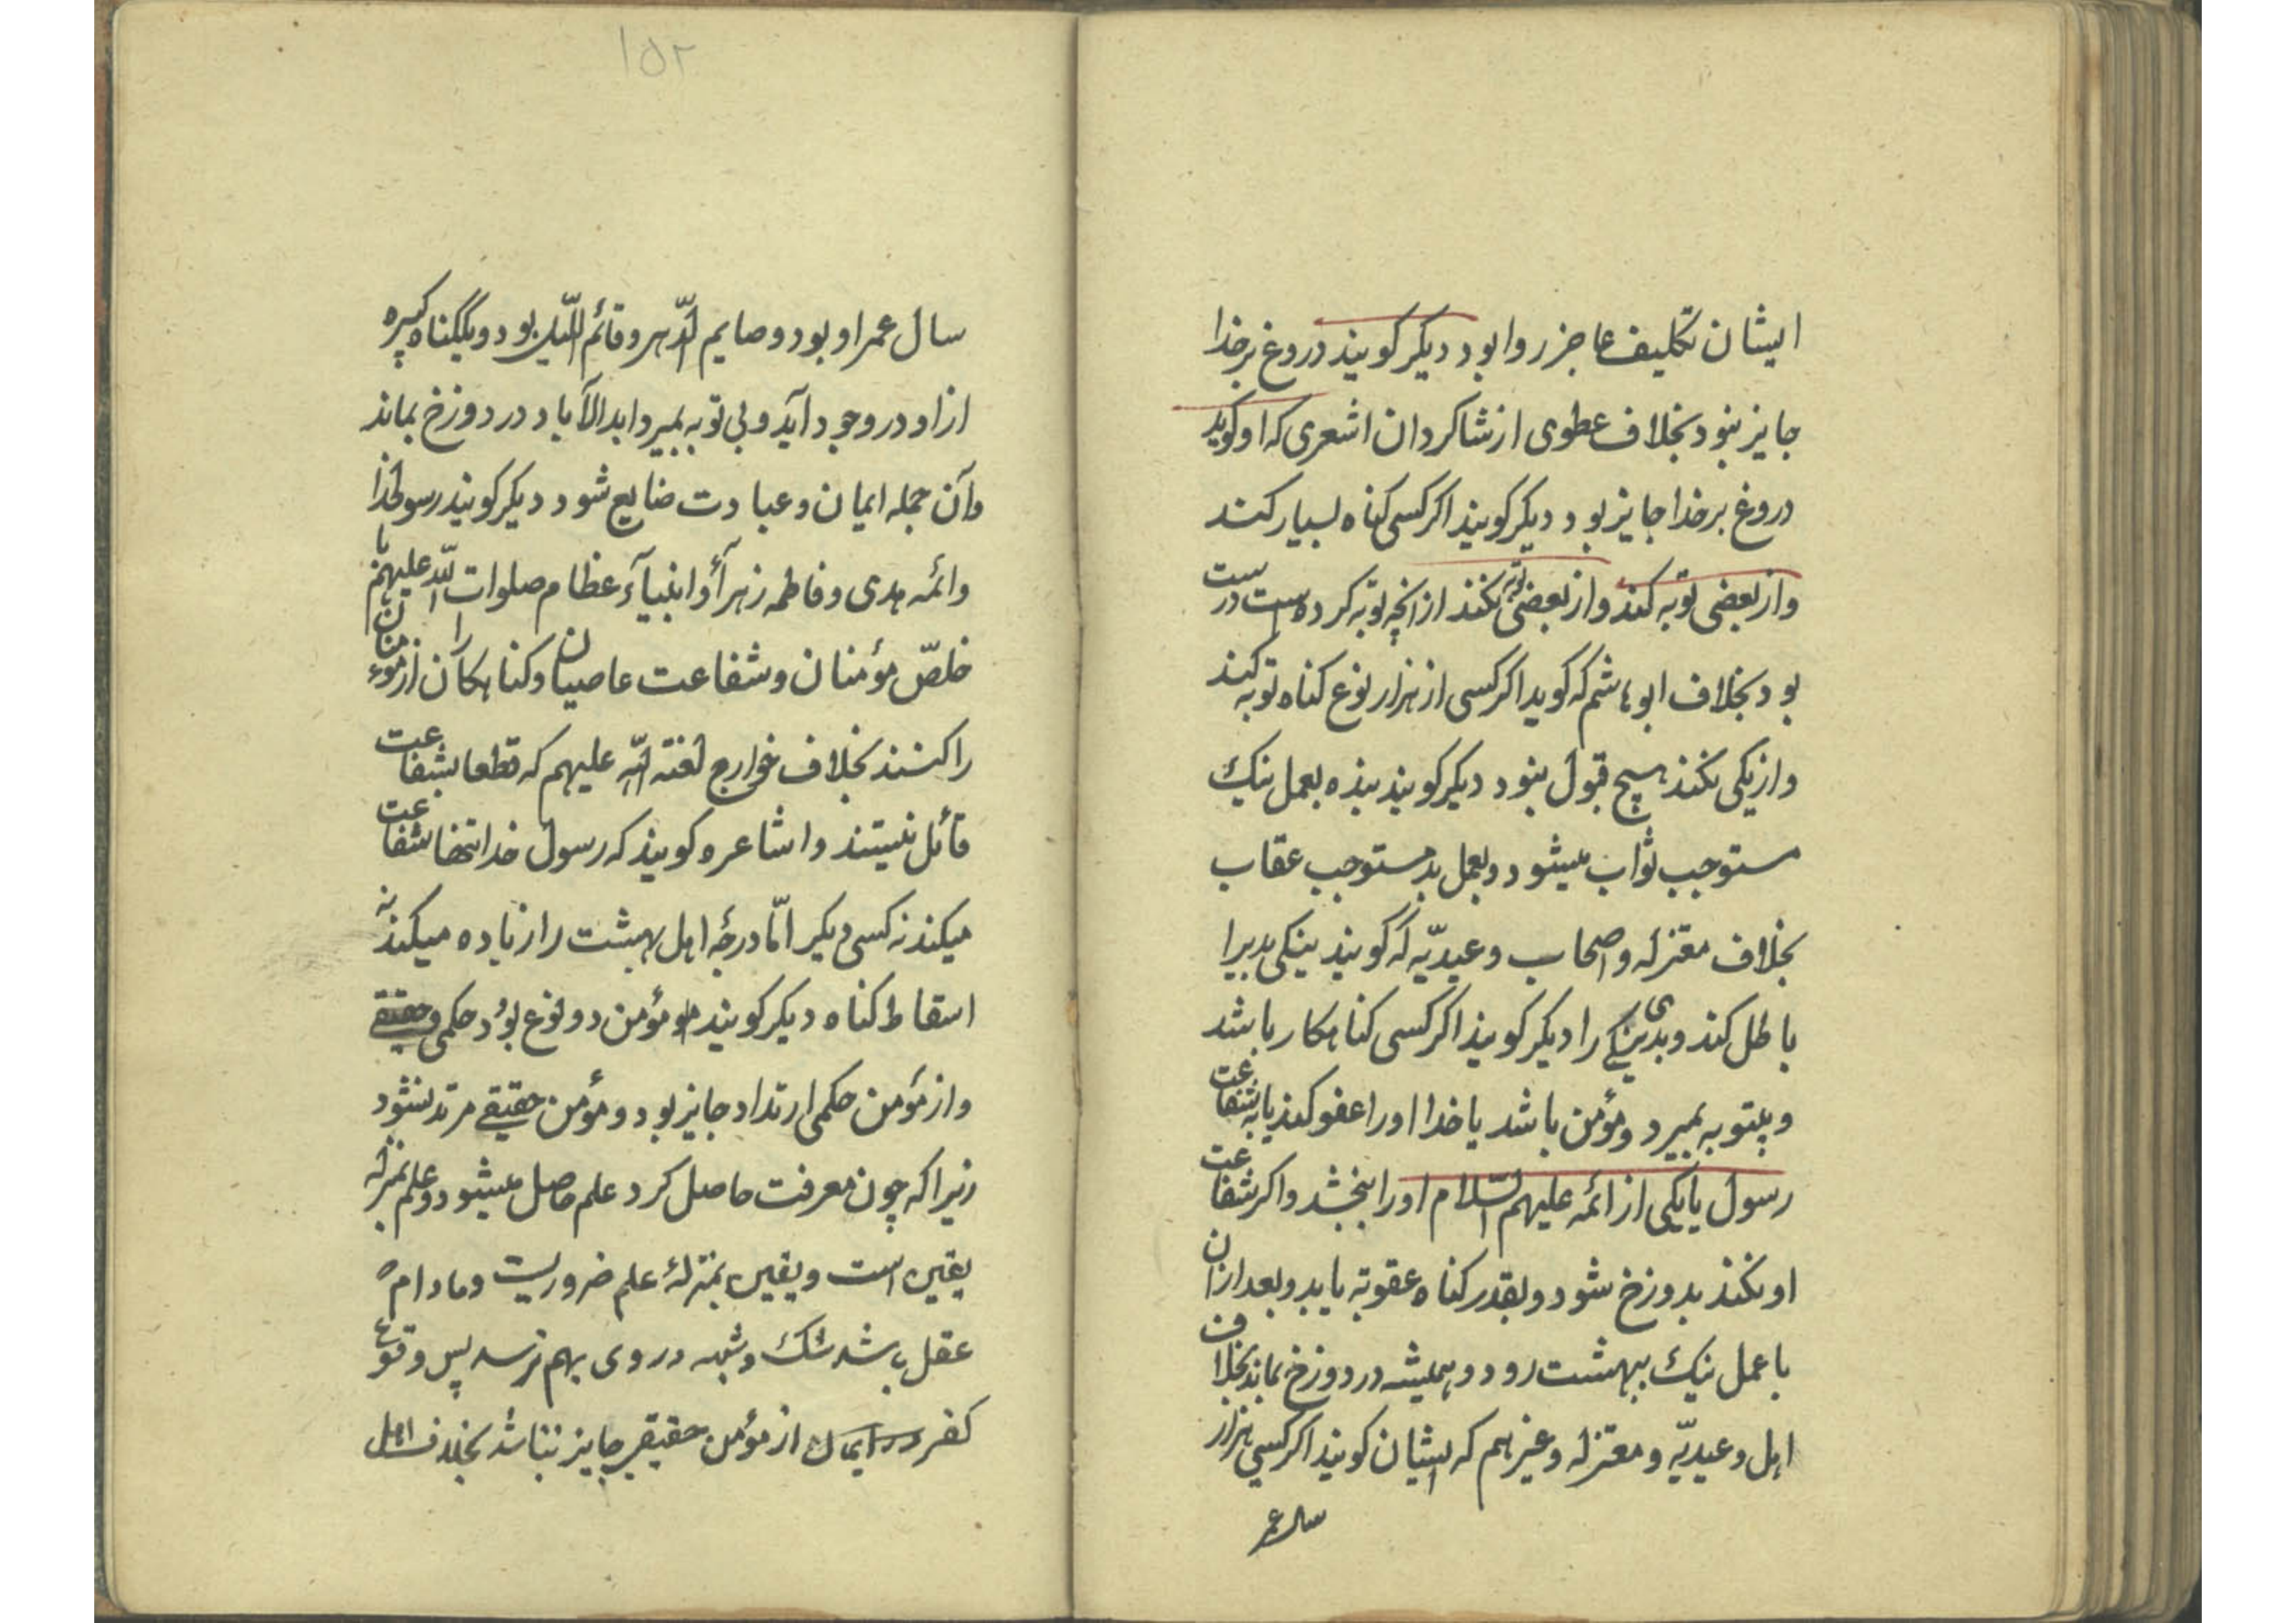 ایشان تکلیف عاجز روا بود دیگر کویند دروغ بر خدا
جایز نبود بخلاف عطوی از شاکردان اشعری که او کوید
دروغ بر خدا جایز بود دیگر کویند اکر کسی کناه بسیار کند
و از بعضی توبه کند و از بعضی توبه نکند از آنچه توبه کرده است درست
بود بخلاف ابوهاشم که کوید اکر کسی از هزار نوع کناه توبه کند
و از یکی نکند هیچ قبول نبود دیکر کویند بنده بعمل نیک
مستوجب ثواب میشود و بعمل بد مستوجب عقاب
بخلاف معتزله و اصحاب وعیدیّه که کویند نیکی بدیرا
باطل کند و بدی نیکی را دیکر کویند اکر کسی کناهکار باشد
و بیتوبه بمیرد و مؤمن باشد یا خدا او را عفو کند یا به شفاعت
رسول یا یکی از ائمه علیهم السلام او را ببخشد و اکر شفاعت
او نکند بدوزخ شود و بقدر کناه عقوبة یابد و بعد ازان
با عمل نیک ببهشت رود و همیشه در دوزخ نماند بخلاف
اهل وعیدیّه و معتزله و غیرهم که ایشان کویند اکر کسی هزار
سال عمر
۱۵۲
سال عمر او بود و صایم الدّهر و قائم اللّیل بود و یکگناه کبیره
از او در وجود آید و بی توبه بمیرد ابد الآباد در دوزخ بماند
و آن جمله ایمان و عبادت ضایع شود دیکر کویند رسولخدا
و ائمه هدی و فاطمه زهرآء و انبیآء عظام صلوات اللّه علیهم
خلصّ مؤمنان و شفاعت عاصیان و کناهکاران از مؤمنان
را کنند بخلاف خوارج لعنة اللّه علیهم که قطعا بشفاعت
قائل نیستند و اشاعره کویند که رسول خدا تنها شفاعت
میکند نه کسی دیکر امّا درجهٔ اهل بهشت را زیاده میکند نه
اسقاط کناه دیکر کویند مؤمن دو نوع بود حکمی و حقیقے
و از مؤمن حکمی ارتداد جایز بود و مؤمن حقیقے مرتد نشود
زیرا که چون معرفت حاصل کرد علم حاصل میشود و علم بمنزله
یقین است و یقین بمنزلهٔ علم ضروریست و مادام که
عقل باشد شک و شبهه در وی بهم نرسد پس وقوع
کفر در ایمان از مؤمن حقیقی جایز نباشد بخلاف اهل